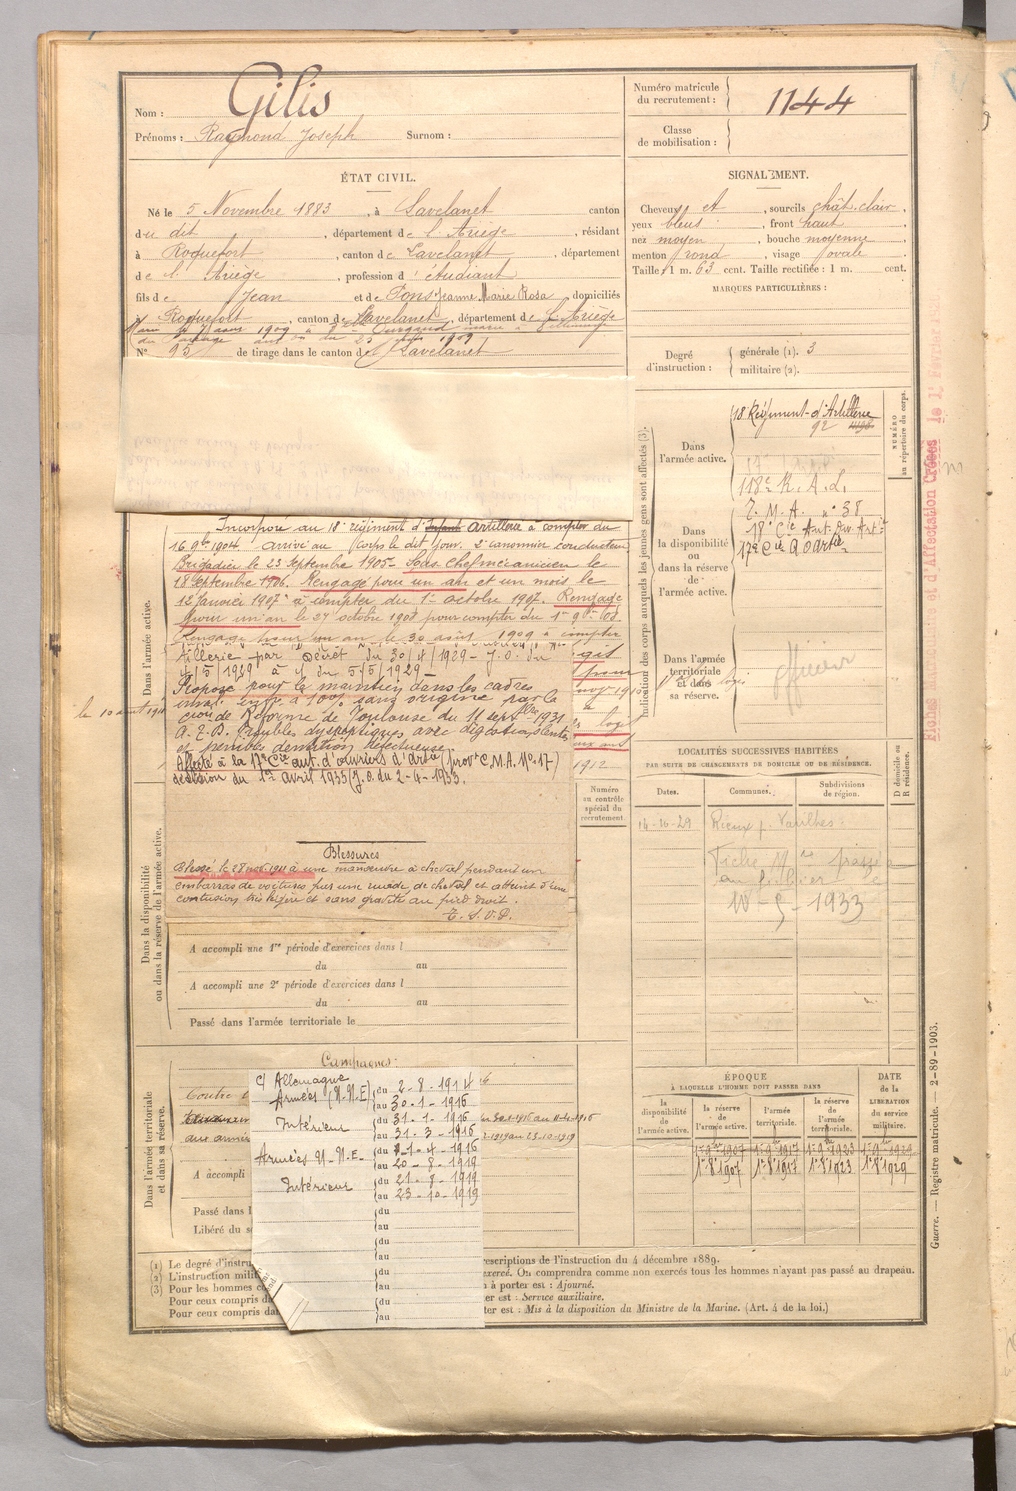 Nom : Gilis
Prénoms : Raymond Joseph Surnom :
Numéro matricule du recrutement : 1144
Classe de mobilisation :
ÉTAT CIVIL.
Né le 5 Novembre 1883, à Lavelanet canton
du dit, département de l'Ariège, résidant
à Roquefort, canton de Lavelanet, département
de l'Ariège, profession d'étudiant
fils de Jean et de Fons Jeanne Marie Rosa domiciliés
à Roquefort, canton de Lavelanet, département de l'Ariège
N° 95 de tirage dans le canton de Lavelanet
SIGNALEMENT.
Cheveux et, sourcils chât. clair,
yeux bleus, front haut
nez moyen, bouche moyenne
menton rond, visage ovale
Taille : 1 m. 63 cent. Taille rectifiée : 1 m. cent.
MARQUES PARTICULIÈRES :
Degré d'instruction : générale (1). 3
militaire (2).
Incorporé au 18e régiment d'Infant artillerie à compter du
16 9bre 1904 arrivé au corps le dit jour. 2e canonnier conducteur
Brigadier le 23 septembre 1905 - Sous chef mécanicien le
18 septembre 1906. Rengagé pour un an et un mois le
12 Janvier 1907 à compter du 1er octobre 1907. Rengagé
pour un an le 27 octobre 1908 pour compter du 1er 9bre 08.
Rengagé pour un an le 30 août 1909 à compter
tillerie par Décret du 30/4/1929 - J.O. du
4/5/1929 à c/ du 5/5/1929 -
Proposé pour le maintien dans les cadres
inval. inf. à 10% sans origine par la
cion de Réforme de Toulouse du 11 septbre 1931
A.E.D. Troubles dyspeptiques avec digestions lentes
et pénibles dentition défectueuse.
Affecté à la 17e Cie aut. d'ouvriers d'artie (provt C.M.A. No 17)
décision du 1er Avril 1933 (J.O. du 2-4-1933.
le 10 août 1911
1912
Blessures
Blessé le 28 nov. 1911 à une manœuvre à cheval pendant un
embarras de voitures par une ruade de cheval et atteint d'une
contusion très légère et sans gravité au pied droit.
T.S.V.P.
Dans l'armée active.
Dans la disponibilité ou dans la réserve de l'armée active.
Dans l'armée territoriale et dans sa réserve.
A accompli une 1re période d'exercices dans l
du au
A accompli une 2e période d'exercices dans l
du au
Passé dans l'armée territoriale le
Numéro au contrôle spécial du recrutement.
Indication des corps auxquels les jeunes gens sont affectés (3).
NUMÉRO au répertoire du corps.
Dans l'armée active.
18 Régiment d'Artillerie
92
118e R.A.L.
Dans la disponibilité ou dans la réserve de l'armée active.
C.M.A. n° 38
18e Cie Aut. Ouv. Art.
17e Cie O. d'artie
Dans l'armée territoriale et dans sa réserve.
Officier
Fiches matricules et d'Affectation Créées le 1er Février
LOCALITÉS SUCCESSIVES HABITÉES
PAR SUITE DE CHANGEMENTS DE DOMICILE OU DE RÉSIDENCE.
Dates. Communes. Subdivisions de région. D domicile ou R résidence.
14-10-29 Rieux p. Varilhes
Fiche Mle passée
au fichier le
18-9-1933
Campagnes
Contre
A accompli
Passé dans l
Libéré du s
C/ Allemagne du 2-8-1914
Armées (N.N.E) au 30-1-1916
Intérieur du 31-1-1916
au 31-3-1916
Armées N.N.E. du 1-4-1916
au 20-8-1919
Intérieur du 21-8-1919
au 23-10-1919
du
au
du
au
du
au
du
au
ÉPOQUE
À LAQUELLE L'HOMME DOIT PASSER DANS
la disponibilité de l'armée active.
la réserve de l'armée active.
l'armée territoriale.
la réserve de l'armée territoriale.
DATE de la LIBÉRATION du service militaire.
1er 9bre 1907 1er 9bre 1917 1er 9bre 1923 1er 9bre 1929
1er 8e 1907 1er 8e 1917 1er 8e 1923 1er 8e 1929
(1) Le degré d'instru escriptions de l'instruction du 4 décembre 1889.
(2) L'instruction milit exercé. On comprendra comme non exercés tous les hommes n'ayant pas passé au drapeau.
(3) Pour les hommes à porter est : Ajourné.
Pour ceux compris da ter est : Service auxiliaire.
Pour ceux compris da ter est : Mis à la disposition du Ministre de la Marine. (Art. 4 de la loi.)
Guerre. — Registre matricule. — 2-89-1903.